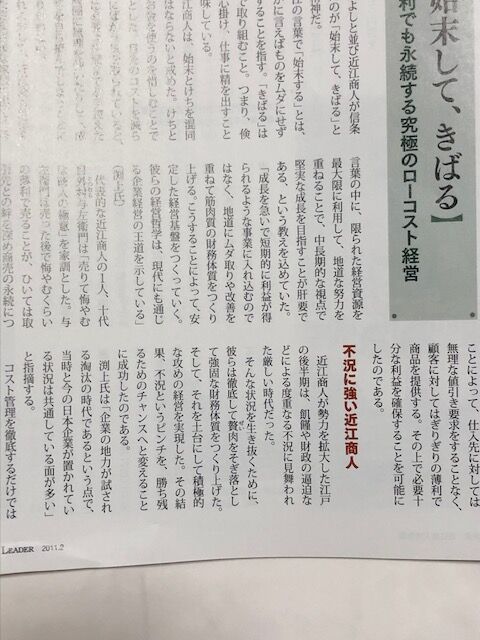 始末して、きばる】
利でも永続する究極のローコスト経営
よしと並び近江商人が信条
のが「始末して、きばる」と
神だ。
の言葉で「始末する」とは、
かに言えばものをムダにせず
ることを指す。「きばる」は
で取り組むこと。つまり、倹
心掛け、仕事に精を出すこと
味している。
江商人は、始末とけちを混同
はならないと戒めた。けちと
お金を使うのを惜しむことで
言葉の中に、限られた経営資源を
最大限に利用して、地道な努力を
重ねることで、中長期的な視点で
堅実な成長を目指すことが肝要で
ある、という教えを込めていた。
「成長を急いで短期的に利益が得
られるような事業に入れ込むので
はなく、地道にムダ取りや改善を
重ねて筋肉質の財務体質をつくり
上げる。こうすることによって、安
定した経営基盤をつくっていく。
彼らの経営哲学は、現代にも通じ
る企業経営の王道を示している」
(渕上氏)
代表的な近江商人の1人、十代
目外村与左衛門は「売りて悔やむ
な商人の極意」を家訓とした。与
左衛門は売った後で悔やむくらい
の薄利で売ることが、ひいては取
引先との絆を深め商売の永続につ
ことによって、仕入先に対しては
無理な値引き要求をすることなく、
顧客に対してはぎりぎりの薄利で
商品を提供する。その上で必要十
分な利益を確保することを可能に
したのである。
不況に強い近江商人
近江商人が勢力を拡大した江戸
の後半期は、飢饉や財政の逼迫な
どによる度重なる不況に見舞われ
た厳しい時代だった。
そんな状況を生き抜くために、
彼らは徹底して贅肉をそぎ落とし
て強固な財務体質をつくり上げた。
そして、それを土台にして積極的
な攻めの経営を実現した。その結
果、不況というピンチを、勝ち残
るためのチャンスへと変えること
に成功したのである。
渕上氏は「企業の地力が試され
る淘汰の時代であるという点で、
当時と今の日本企業が置かれてい
る状況は共通している面が多い」
と指摘する。
コスト管理を徹底するだけでは
LEADER 2011.2